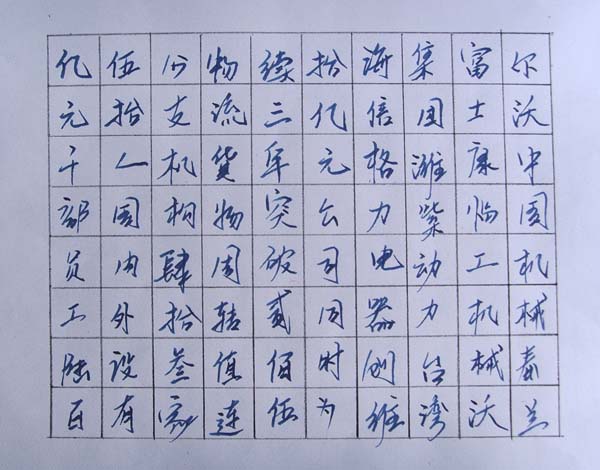 亿元干部员工陆百
伍拾人国内外设有
分支机构肆拾叁家
物流货物周转值连
续三年突破贰佰伍
拾亿元公司同时为
海信格力电器创维
集团潍柴动力台湾
富士康临工机械沃
尔沃中国机械春兰